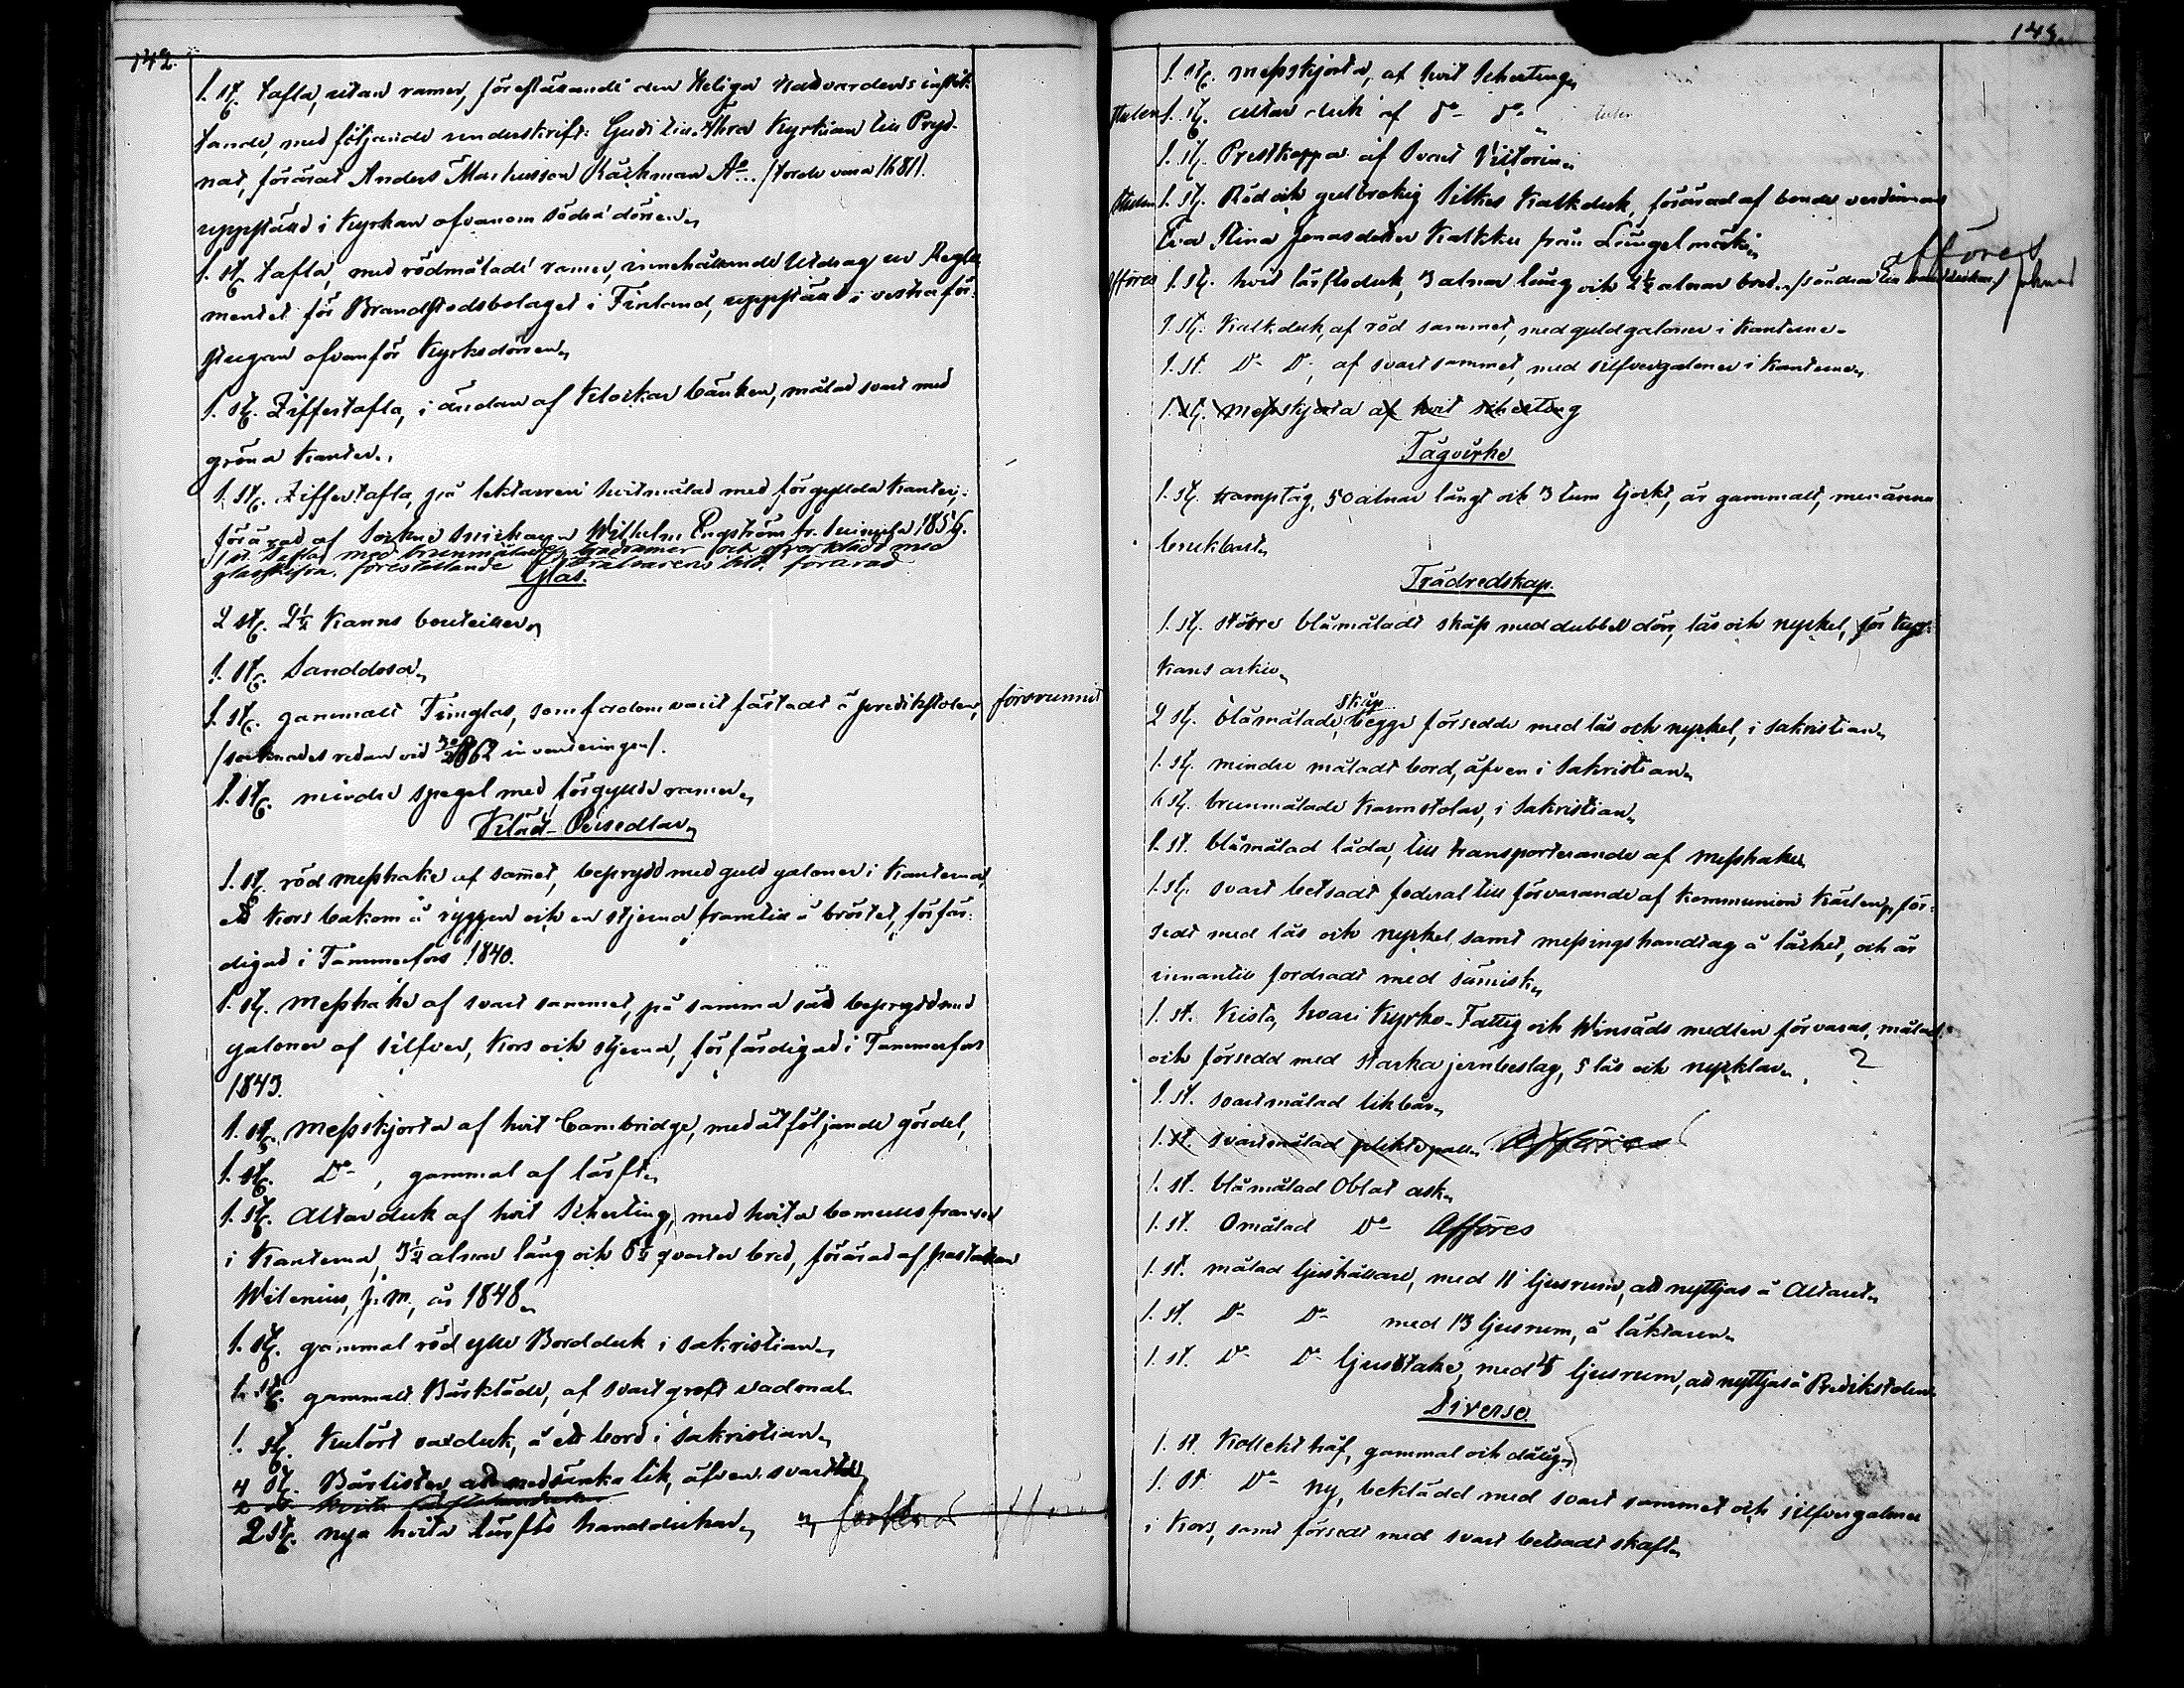 142.
1. st. tafla, utan ramer, föreställande den Heliga Nattvardens instik-
tande, med följande underskrift: Gudi till Ähra Kyrkian till Pryd-
nat, förärat Anders Markusson Kårkman Ao... /torde vara 1681/.
uppstäld i Kyrkan ofvanom södra dörren,
1. st. tafla, med rödmålade ramer, innehållande Utdrag ur Regle
mentet för Brandstodsbolaget i Finland, uppstäld i vestra för-
stugan ofvanför Kyrkodörren,
1. st. Ziffertafla, i ändan af Klockar bänken, målad svart med
gröna Kanter.
1. st. Ziffertafla, på lektaren hvitmålad med förgyllda Kanter;
förärad af Socknesnickaren Wilhelm Engström fr. 1856.
1 st. Taflad med brunmålade och öfverklädd med
glasskifva, föreställande Frälsarens bild. förärad
Glas.
2 st. 2½ Kanns bouteiller
1. st. Sanddosa
1. st. gammalt Timglas, som fordom varit fästadt å predikstolen, försvunnit
/saknades redan vid 1862 inventeringen/.
1. st. mindre spegel med förgyllda ramer
Kläd-Persedlar
1. st. röd messhake af samet, beprydd med guld galoner i Kanterna,
ett Kors bakom å ryggen och en stjerna framtill å bröstet, förfär-
digad i Tammerfors 1840.
1. st. Messhake af svart sammet, på samma sätt beprydd med
galoner af silfver, Kors och stjerna, förfärdigad i Tammerfors
1843.
1. st. Messskjorta af hvit Cambridge, med åtföljande gördel,
1. st. Do, gammal af lärft
1. st. Altarduk af hvit Scherting, med hvita bomulls fransar
i Kanterna, 3½ alnar lång och 5½ qvarter bred, förärad af
Witenius, J. M., år 1848
1. st. gammal röd ylle Bordduk i sakristian
1. st. gammalt Bårkläde, af svart groft vadmal
1. st. Kulört vaxduk, å ett bord i sakristian
4 st. Bårlister, att nedsänka lik, äfven svarta
2 st. hvita
2 st. nya hvita lärfts handdukar
143.
1. st. messskjorta, af hvit Scherting
Stulen 1. st. altar duk af do do
1. st. Prestkappa af svart Viktoria
Stulen 1. st. Röd och gulbrokig Silkes Kalkduk, förärad af bonde verdinnan
Eva Stina Jonasdotter Kalkku från Längelmäki
afföres
Afföres 1. st. hvit lärftsduk, 3 alnar lång och 2½ alnar bred
1. st. Kalkduk, af röd sammet, med guldgaloner i Kanterne
1. st. Do Do, af svart sammet, med silfvergaloner i Kanterne
1. st. Messskjorta af hvit scherting
Tågvirke
1. st. kamptåg, 50 alnar långt och 3 tum tjockt, är gammalt, men ännu
brukbart
Trädredskap.
1. st. större blåmåladt skåp med dubbel dörr, lås och nyckel, för Kyr-
kans arkiv
skåp
2 st. blåmålade, begge försedde med lås och nyckel, i sakristian
1. st. mindre måladt bord, äfven i Sakristian
st. brunmålade Karmstolar, i Sakristian
1. st. blåmålad låda, till transporterande af messhaken
1. st. svart betsadt foderal till förvarande af Kommunion Kärlen, för-
sedt med lås och nyckel, samt messingshandtag å låcket, och är
innantill fordradt med sämisk
1. st. Kista, hvari Kyrko-Fattig och Winsäds medlen förvaras, målad
och försedd med starka jernbeslag, 5 lås och nycklar. 2
1. st. svartmålad likbår
1. st. svartmålad pliktspall Afföres
1. st. blåmålad Oblat ask
1. st. Omålad Do Afföres
1. st. målad ljushållare, med 11 ljusrum, att nyttjas å Altaret
1. st. Do Do med 13 ljusrum, å läktaren
1. st. Do Do ljusstake, med ljusrum, att nyttjas å Predikstolen
Diverse.
1. st. Kollekt håf, gammal och dålig
1. st Do ny, beklädd med svart sammet och silfvergaloner
i Kors, samt försedt med svart betsadt skaft